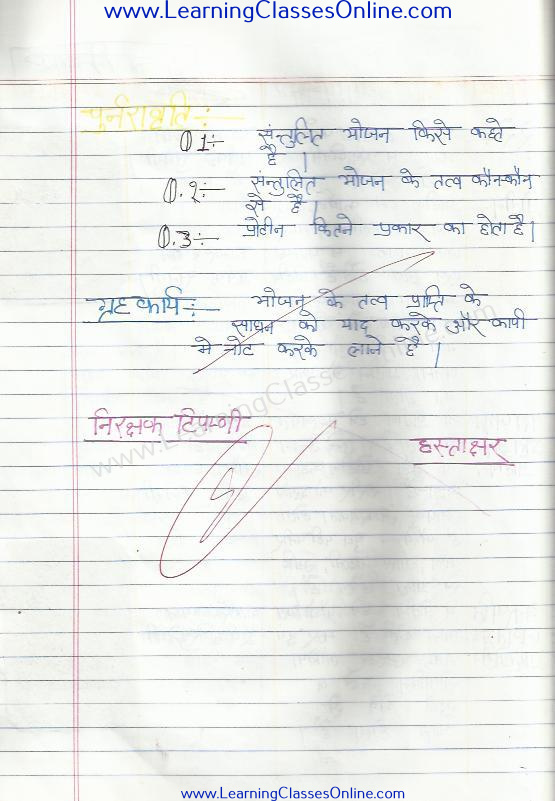 www.LearningClassesOnline.com
पुर्नरावृति :-
Q 1:- संन्तुलित भोजन किसे कहते
है ।
Q.2:- संन्तुलित भोजन के तत्व कौन-कौन
से है ।
Q.3:- प्रोटीन कितने प्रकार का होता है ।
ग्रहकार्य :- भोजन के तत्व प्राप्ति के
साधन को याद करके और कापी
मे नोट करके लाने है ।
www.LearningClassesOnline.com
निरक्षक टिपण्णी
हस्ताक्षर
www.LearningClassesOnline.com